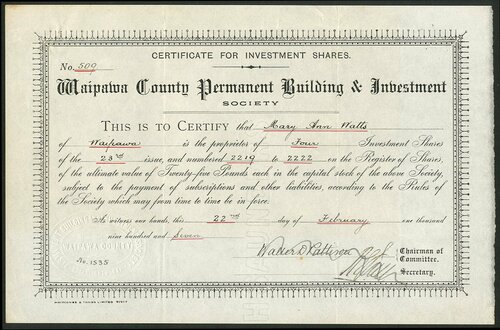 CERTIFICATE FOR INVESTMENT SHARES.
No. 509
Waipawa County Permanent Building & Investment
SOCIETY
THIS IS TO CERTIFY that Mary Ann Watts
of Waipawa is the proprietor of Four Investment Shares
of the 23rd issue, and numbered 2219 to 2222 on the Register of Shares,
of the ultimate value of Twenty-five Pounds each in the capital stock of the above Society,
subject to the payment of subscriptions and other liabilities, according to the Rules of
the Society which may from time to time be in force.
As witness our hands, this 22nd day of February one thousand
nine hundred and Seven
WAIPAWA COUNTY
Walter D Pattison
Chairman of
Committee.
Secretary.
No. 1535